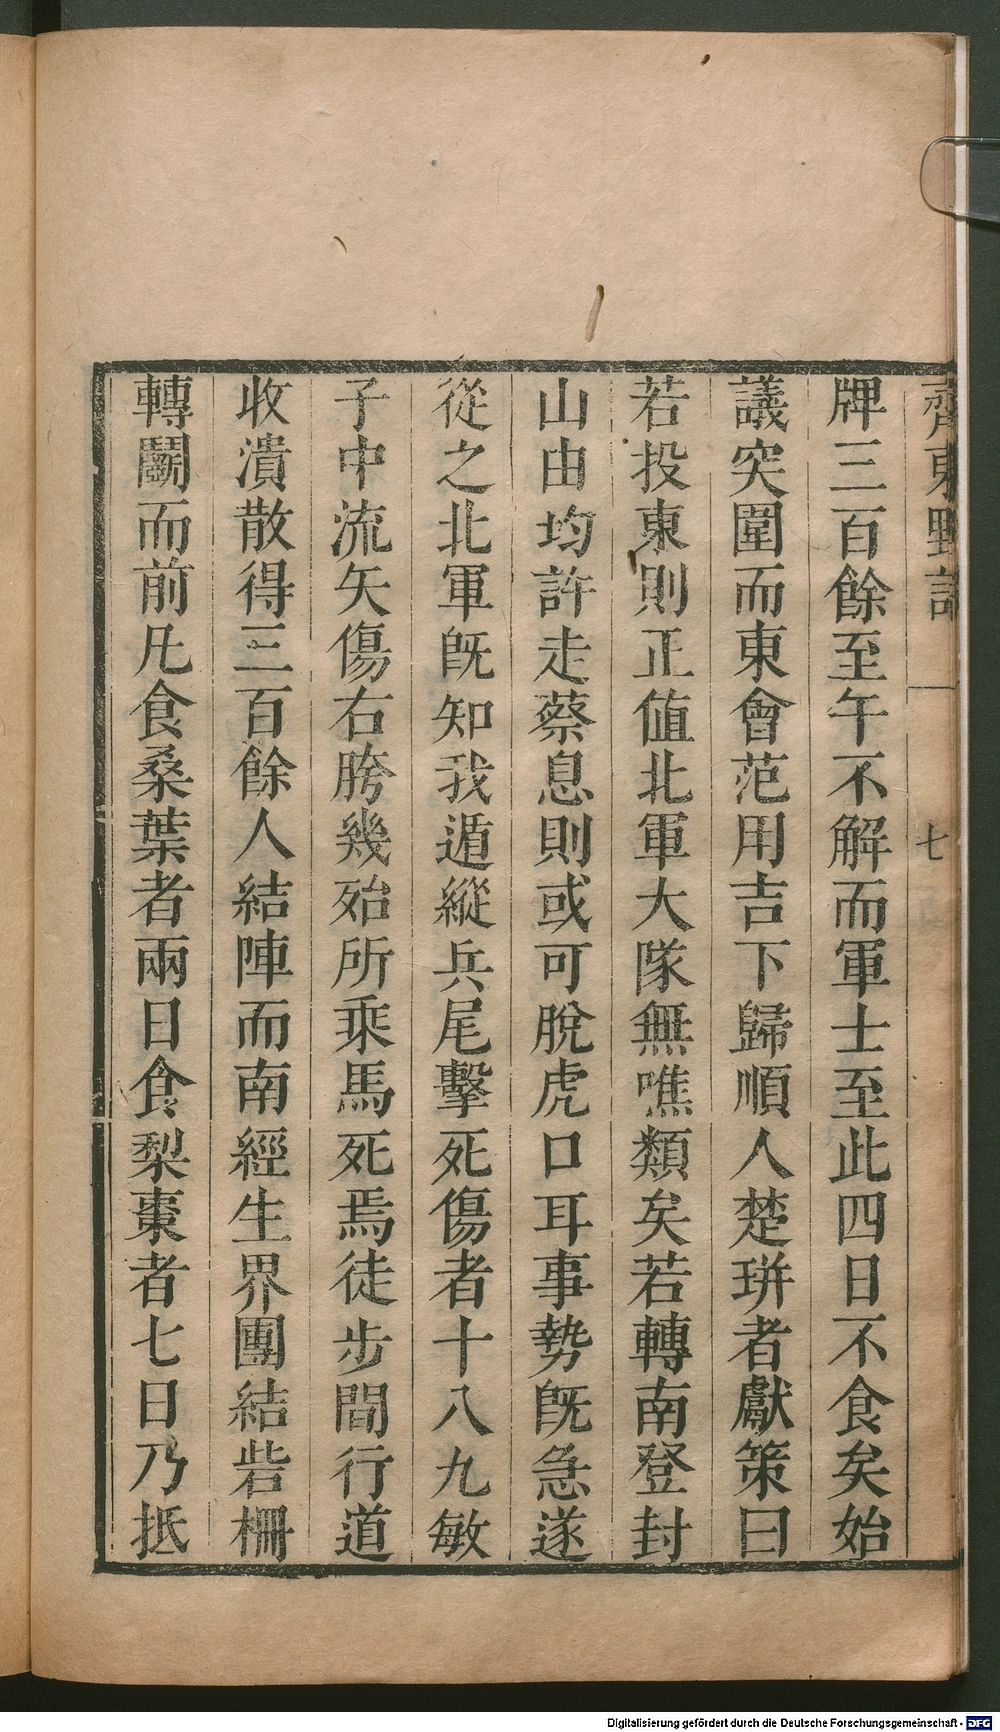 齊東野語
七
牌三百餘至午不解而軍士至此四日不食矣始
議突圍而東會范用吉下歸順人楚珜者獻策曰
若投東則正值北軍大隊無噍類矣若轉南登封
山由均許走蔡息則或可脫虎口耳事勢旣急遂
從之北軍旣知我遁縱兵尾擊死傷者十八九敏
子中流矢傷右胯幾殆所乘馬死焉徒步間行道
收潰散得三百餘人結陣而南經生界團結砦柵
轉鬬而前凡食桑葉者兩日食梨棗者七日乃抵
Digitalisierung gefördert durch die Deutsche Forschungsgemeinschaft - DFG